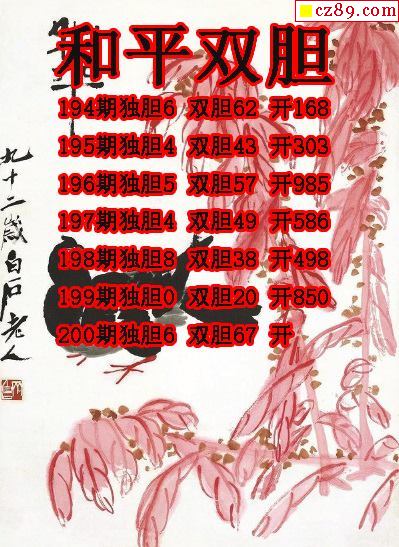 cz89.com
和平双胆
194期独胆6 双胆62 开168
195期独胆4 双胆43 开303
196期独胆5 双胆57 开985
197期独胆4 双胆49 开586
198期独胆8 双胆38 开498
199期独胆0 双胆20 开850
200期独胆6 双胆67 开
九十二岁白石老人